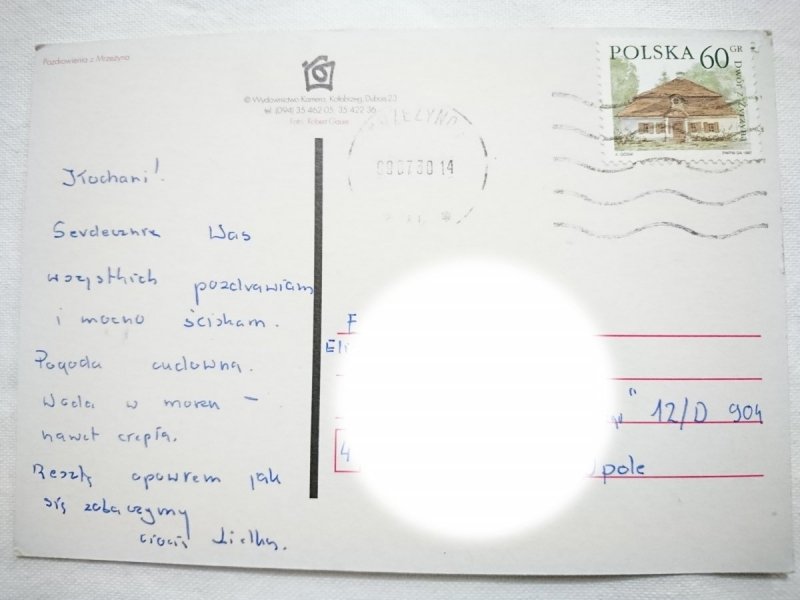 Pozdrowienia z Mrzeżyna
© Wydawnictwo Kamera, Kołobrzeg, Dubois 23
tel. (094) 35 462 05, 35 422 36
Foto: Robert Gauer
POLSKA 60 GR
Dwór
98 07 30 14
Kochani!
Serdecznie Was
wszystkich pozdrawiam
i mocno ściskam.
Pogoda cudowna.
Woda w morzu –
nawet ciepła.
Resztę opowiem jak
się zobaczymy
ciocia
F
Eli
" 12/D 904
4
pole